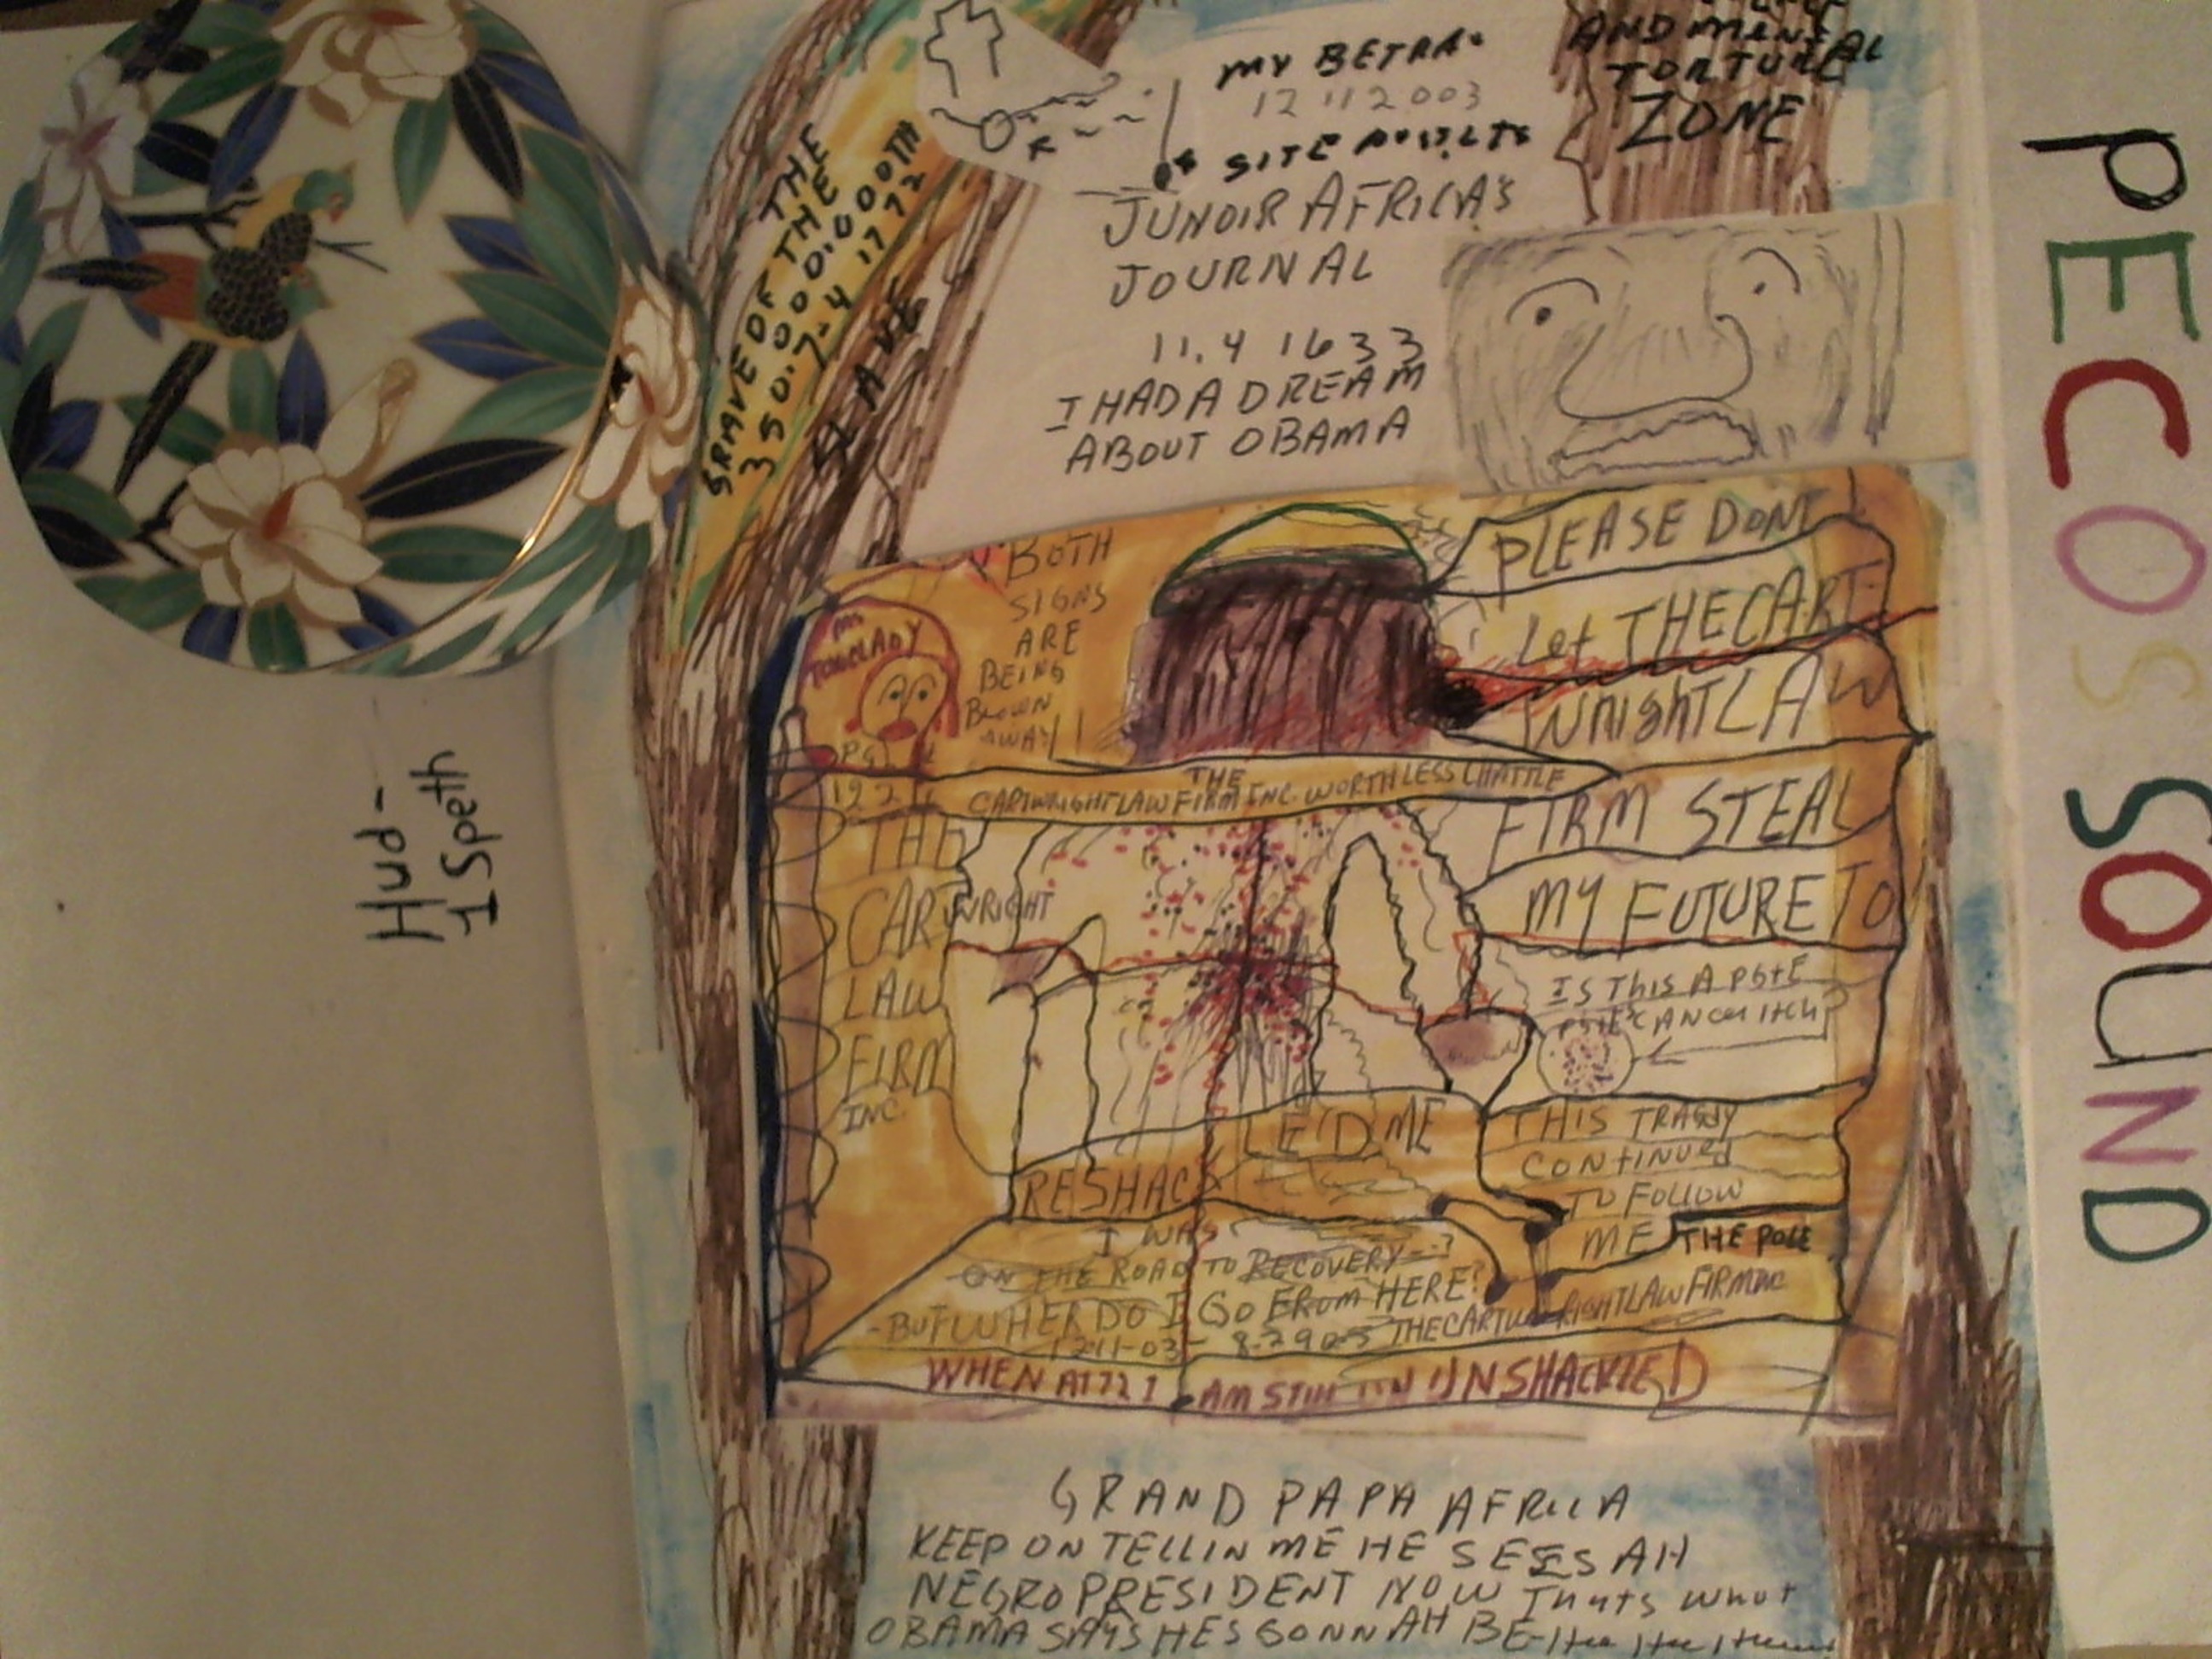 THE
GRAVE OF THE
350.000.000.000TH
7-4 1772
SLAVE
MY BETRA-
12 11 2003
SITE
AND MENTAL
TORTURE
ZONE
JUNOIR AFRICA'S
JOURNAL
11.4 1633
I HAD A DREAM
ABOUT OBAMA
BOTH
SIGNS
ARE
BEING
BLOWN
AWAY!
PLEASE DONT
Let THE CART-
WRIGHT LAW
FIRM STEAL
MY FUTURE TO
THE
CARTWRIGHT LAW FIRM INC. WORTHLESS CHATTLE
THE
CARTWRIGHT
LAW
FIRM
INC.
IS THIS A PG+E
LED ME
RESHACK
THIS TRAGDY
CONTINUED
TO FOLLOW
ME THE POLE
I WAS
ON THE ROAD TO RECOVERY--?
-BUT WHER DO I GO FROM HERE?
12-11-03- 8.29 05 THE CARTWRIGHT LAW FIRM INC
WHEN AT 72 I AM STILL UN UNSHACKLED
GRAND PAPA AFRICA
KEEP ON TELLIN ME HE SEES AH
NEGRO PRESIDENT NOW Thats what
OBAMA SAYS HES GONNAH BE-
Hud-
1 Speth
PECOS SOUND